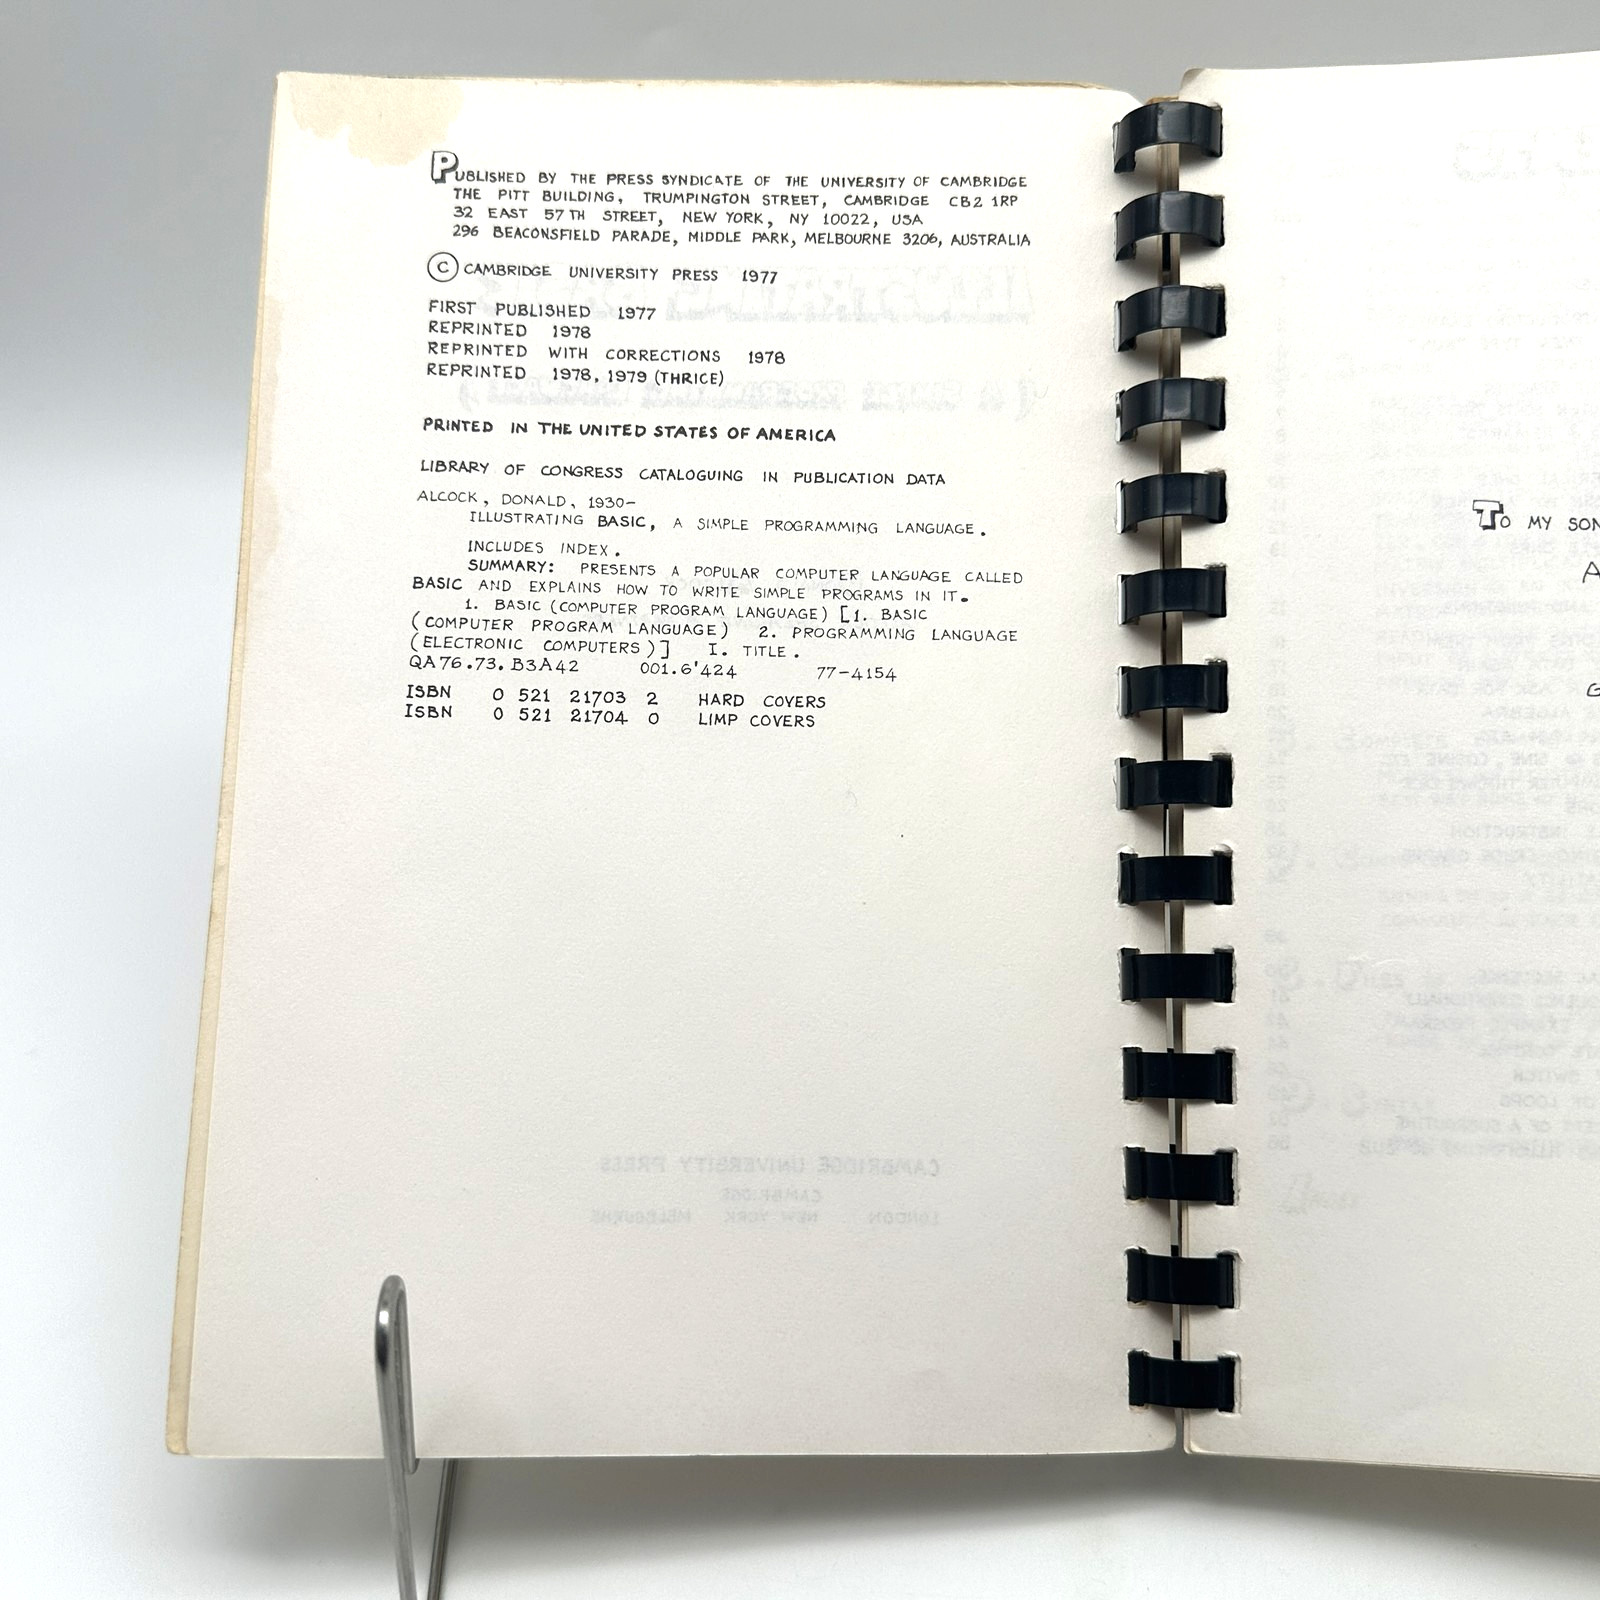 PUBLISHED BY THE PRESS SYNDICATE OF THE UNIVERSITY OF CAMBRIDGE
THE PITT BUILDING, TRUMPINGTON STREET, CAMBRIDGE CB2 1RP
32 EAST 57TH STREET, NEW YORK, NY 10022, USA
296 BEACONSFIELD PARADE, MIDDLE PARK, MELBOURNE 3206, AUSTRALIA
© CAMBRIDGE UNIVERSITY PRESS 1977
FIRST PUBLISHED 1977
REPRINTED 1978
REPRINTED WITH CORRECTIONS 1978
REPRINTED 1978, 1979 (THRICE)
PRINTED IN THE UNITED STATES OF AMERICA
LIBRARY OF CONGRESS CATALOGUING IN PUBLICATION DATA
ALCOCK, DONALD, 1930-
ILLUSTRATING BASIC, A SIMPLE PROGRAMMING LANGUAGE.
INCLUDES INDEX.
SUMMARY: PRESENTS A POPULAR COMPUTER LANGUAGE CALLED
BASIC AND EXPLAINS HOW TO WRITE SIMPLE PROGRAMS IN IT.
1. BASIC (COMPUTER PROGRAM LANGUAGE) [1. BASIC
(COMPUTER PROGRAM LANGUAGE) 2. PROGRAMMING LANGUAGE
(ELECTRONIC COMPUTERS)] I. TITLE.
QA76.73.B3A42 001.6'424 77-4154
ISBN 0 521 21703 2 HARD COVERS
ISBN 0 521 21704 0 LIMP COVERS
TO MY SON